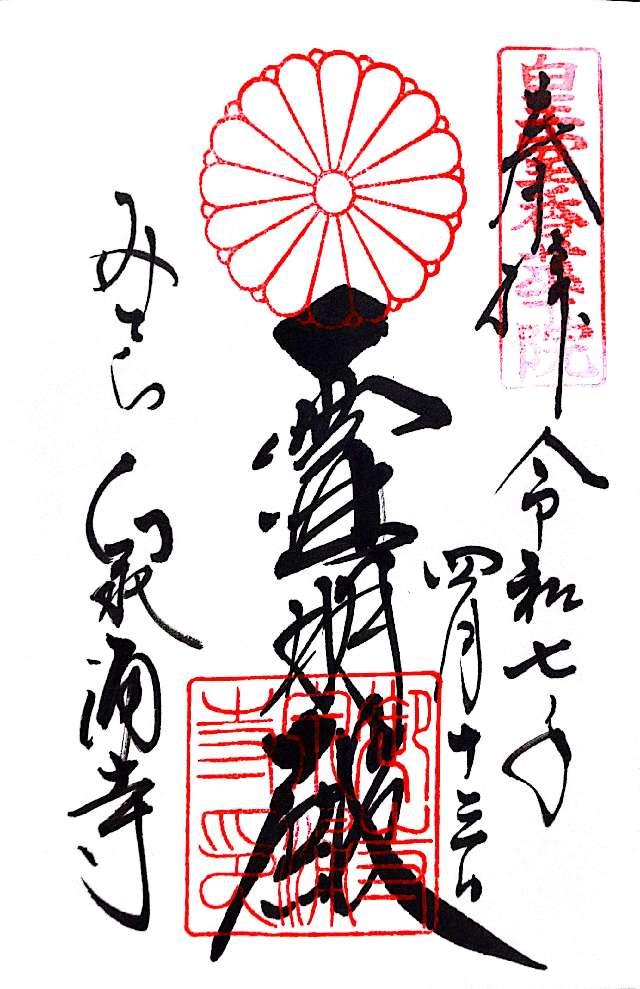 奉拝
令和七年
四月十三日
皇室香華院
霊明殿
みてら
泉涌寺
御寺泉涌寺印